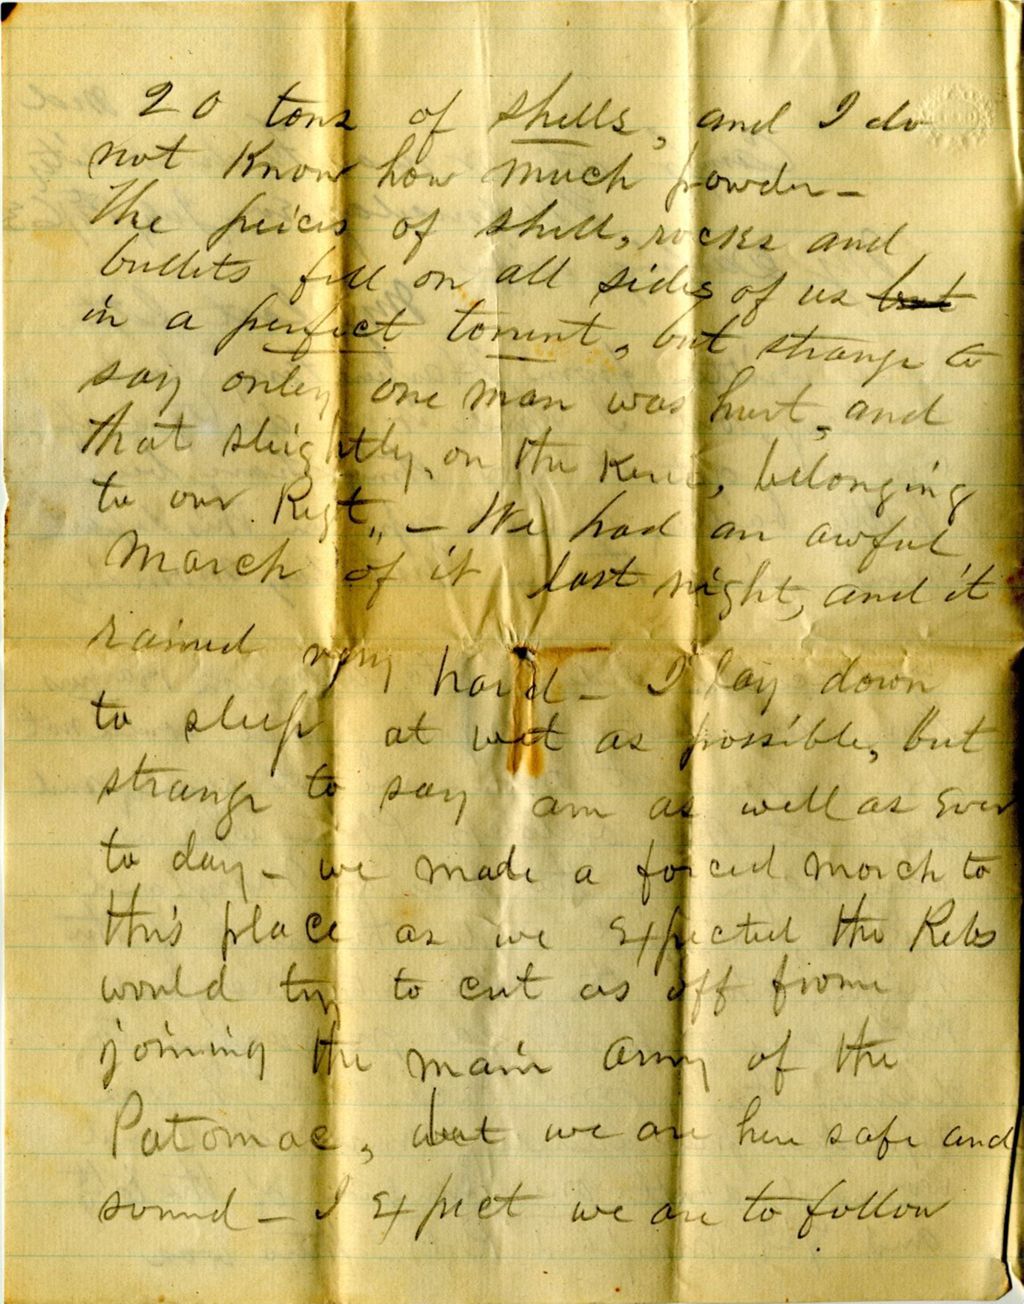 20 tons of shells, and I do
not Know how much powder -
The peices of shell, rocks and
bullets fell on all sides of us but
in a perfect torrent, but strange to
say only one man was hurt, and
that sleightly, on the Knee, belonging
to our Regt,, - We had an awful
March of it last night, and it
rained very hard - I lay down
to sleep at wet as possible, but
strange to say am as well as Ever
to day - we made a forced march to
this place as we Expected the Rebs
would try to cut us off frome
joining the main army of the
Patomac, but we are here safe and
sound - I Expect we are to follow